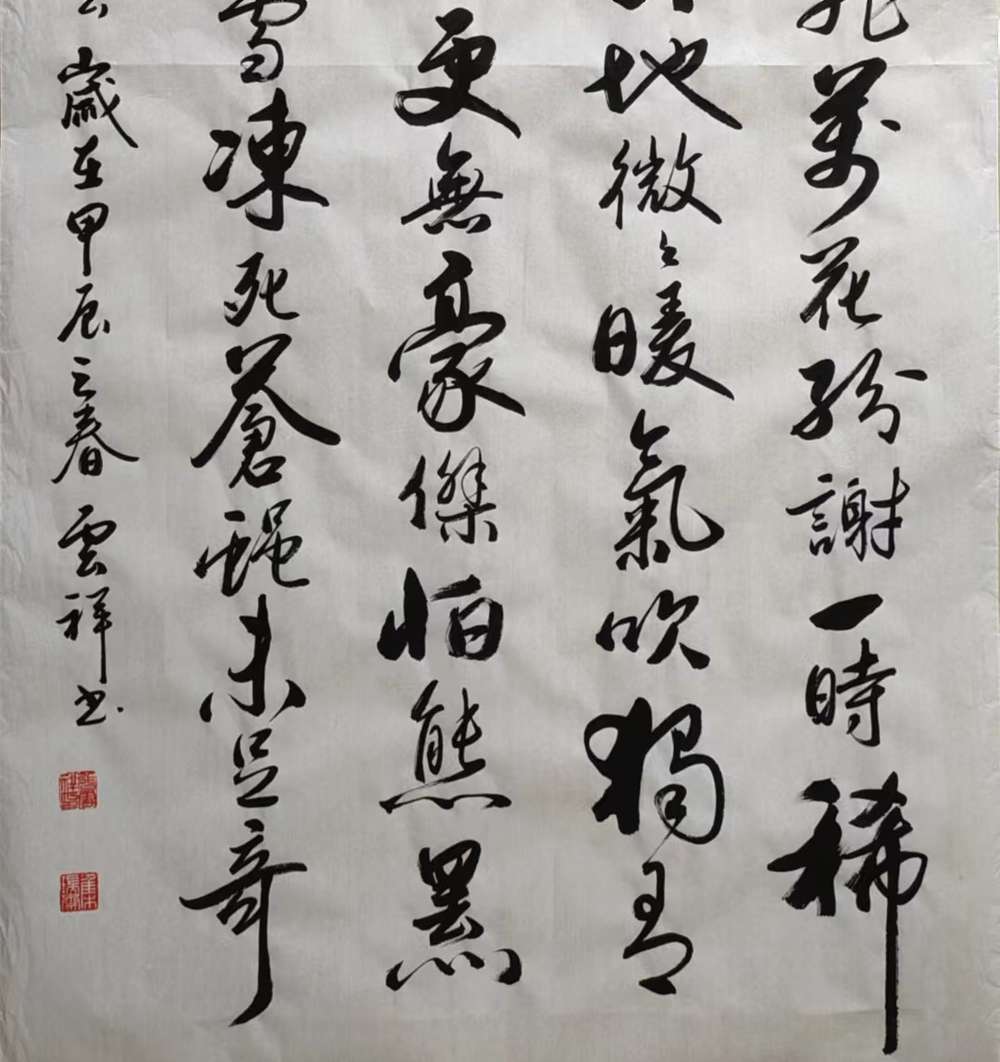 飛萬花紛謝一時稀
地微々暖氣吹獨有
更無豪傑怕熊羆
雪凍死蒼蠅未足奇
歲在甲辰之春雲祥书